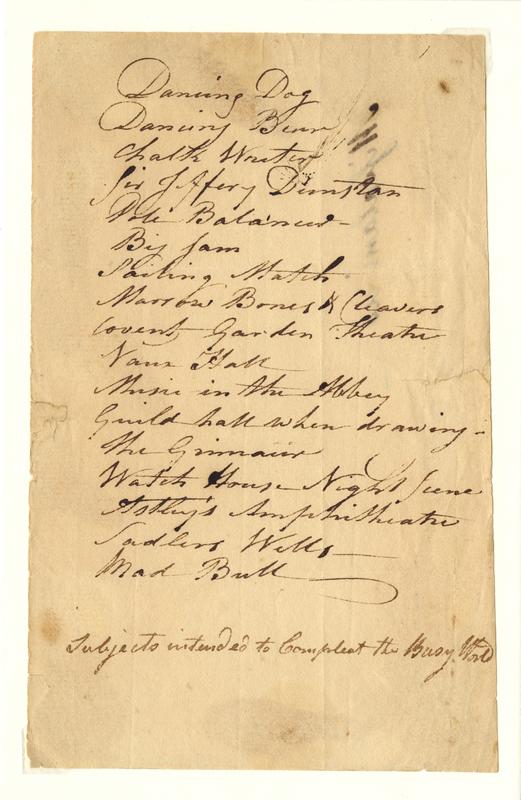 Dancing Dog
Dancing Bear
Chalk Writer
Sir Jeffery Dunstan
Pole Balancer
Big Sam
Sailing Match
Marrow Bones & Cleavers
Covent Garden Theatre
Vaux Hall
Music in the Abbey
Guild hall when drawing -
the
Watch House Night Scene
Astley's Amphitheatre
Sadlers Wells
Mad Bull
Subjects intended to Compleat the Busy World